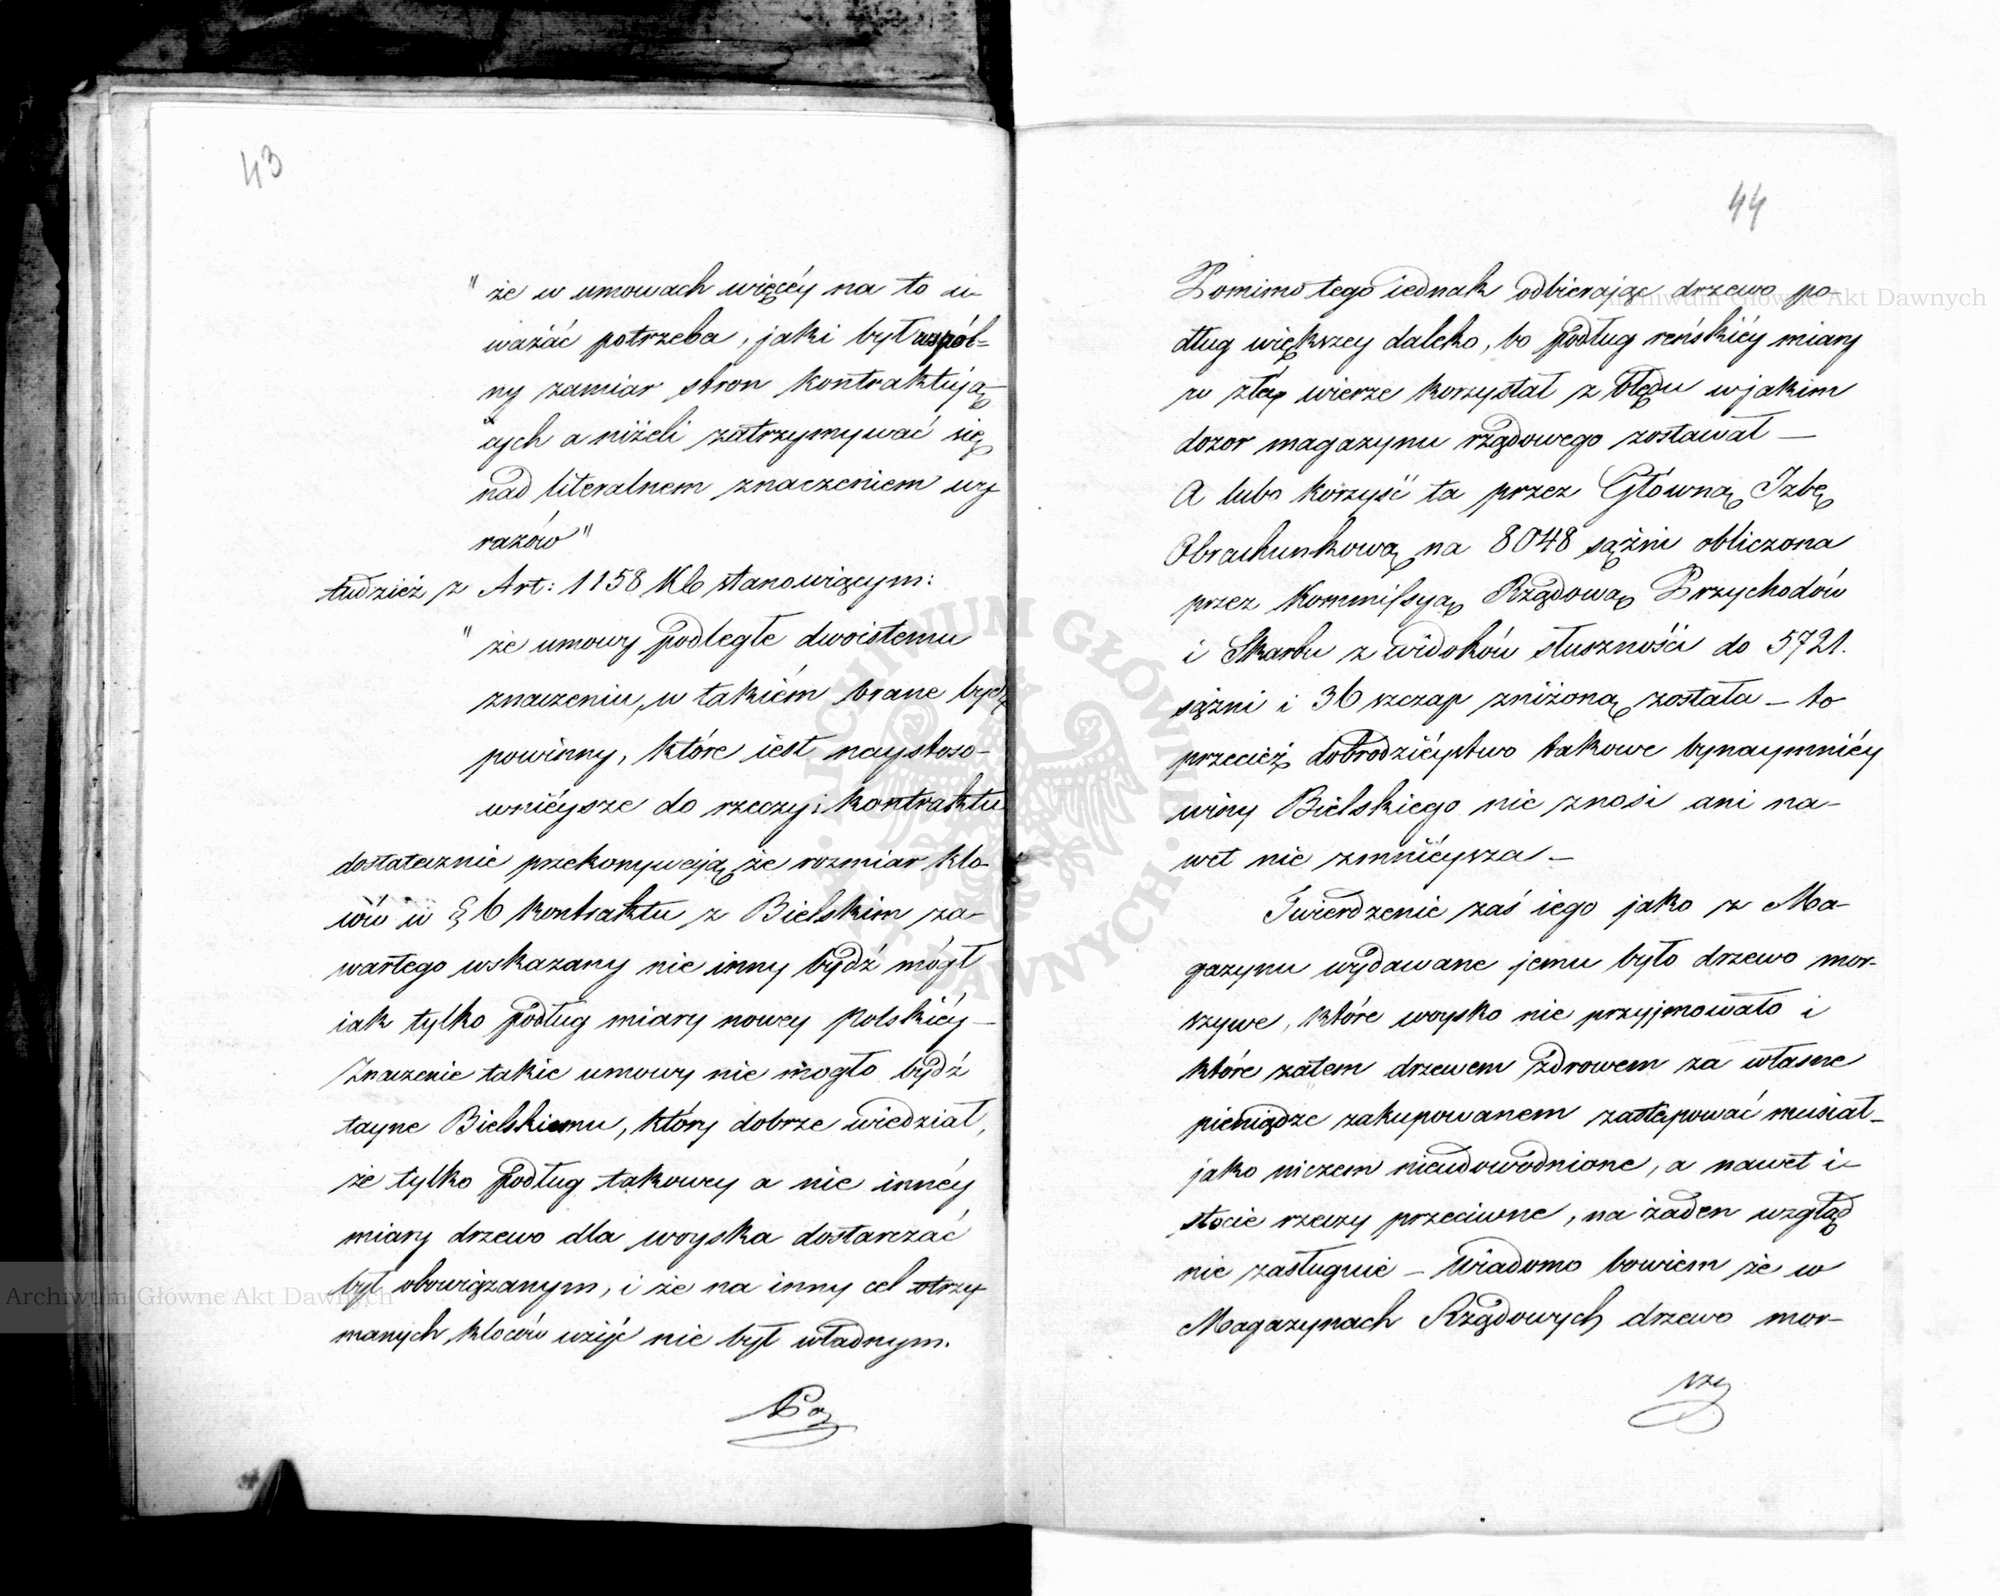 43
" że w umowach więcéy na to u-
ważać potrzeba, jaki był wspól-
ny zamiar stron kontraktują-
cych a niżeli zatrzymywać się
nad literalnem znaczeniem wy
razów"
tudzież z Art: 1158 KC stanowiącym:
" że umowy podległe dwoistemu
znaczeniu, w takiém brane bydź
powinny, które iest naystoso-
wnieysze do rzeczy i kontraktu
dostatecznie przekonywają, że rozmiar klo-
ców w § 6 kontraktu z Bielskim za-
wartego wskazany nie inny bydź mógł
iak tylko podług miary nowey polskiéy –
Znaczenie takie umowy nie mogło bydź
tayne Bielskiemu, który dobrze wiedział,
że tylko podług takowey a nie innéy
miary drzewo dla woyska dostarczać
był obowiązanym, i że na inny cel otrzy
manych kloców użyć nie był władnym.
Po
44
Pomimo tego iednak odbierając drzewo po-
dług większey daleko, bo podług reńskiéy miary
w złey wierze korzystał z błędu w jakim
dozor magazynu rządowego zostawał —
A lubo korzyść ta przez Główną Izbę
Obrachunkową na 8048 sążni obliczona
przez Kommissyą Rządową Przychodów
i Skarbu z widoków słuszności do 5721.
sążni i 36 szczap zniżoną została – to
przecież dobrodziéystwo takowe bynaymniéy
winy Bielskiego nie znosi ani na-
wet nie zmniéysza –
Twierdzenie zaś iego jako z Ma-
gazynu wydawane jemu było drzewo mor-
szywe, które woysko nie przyjmowało i
które zatem drzewem zdrowem za własne
pieniądze zakupowanem zastępować musiał –
jako niczem nieudowodnione, a nawet i-
stocie rzeczy przeciwne, na żaden wzgląd
nie zasługuie – Wiadomo bowiem że w
Magazynach Rządowych drzewo mor-
szy
Archiwum Główne Akt Dawnych
Archiwum Główne Akt Dawnych
ARCHIWUM GŁÓWNE AKT DAWNYCH